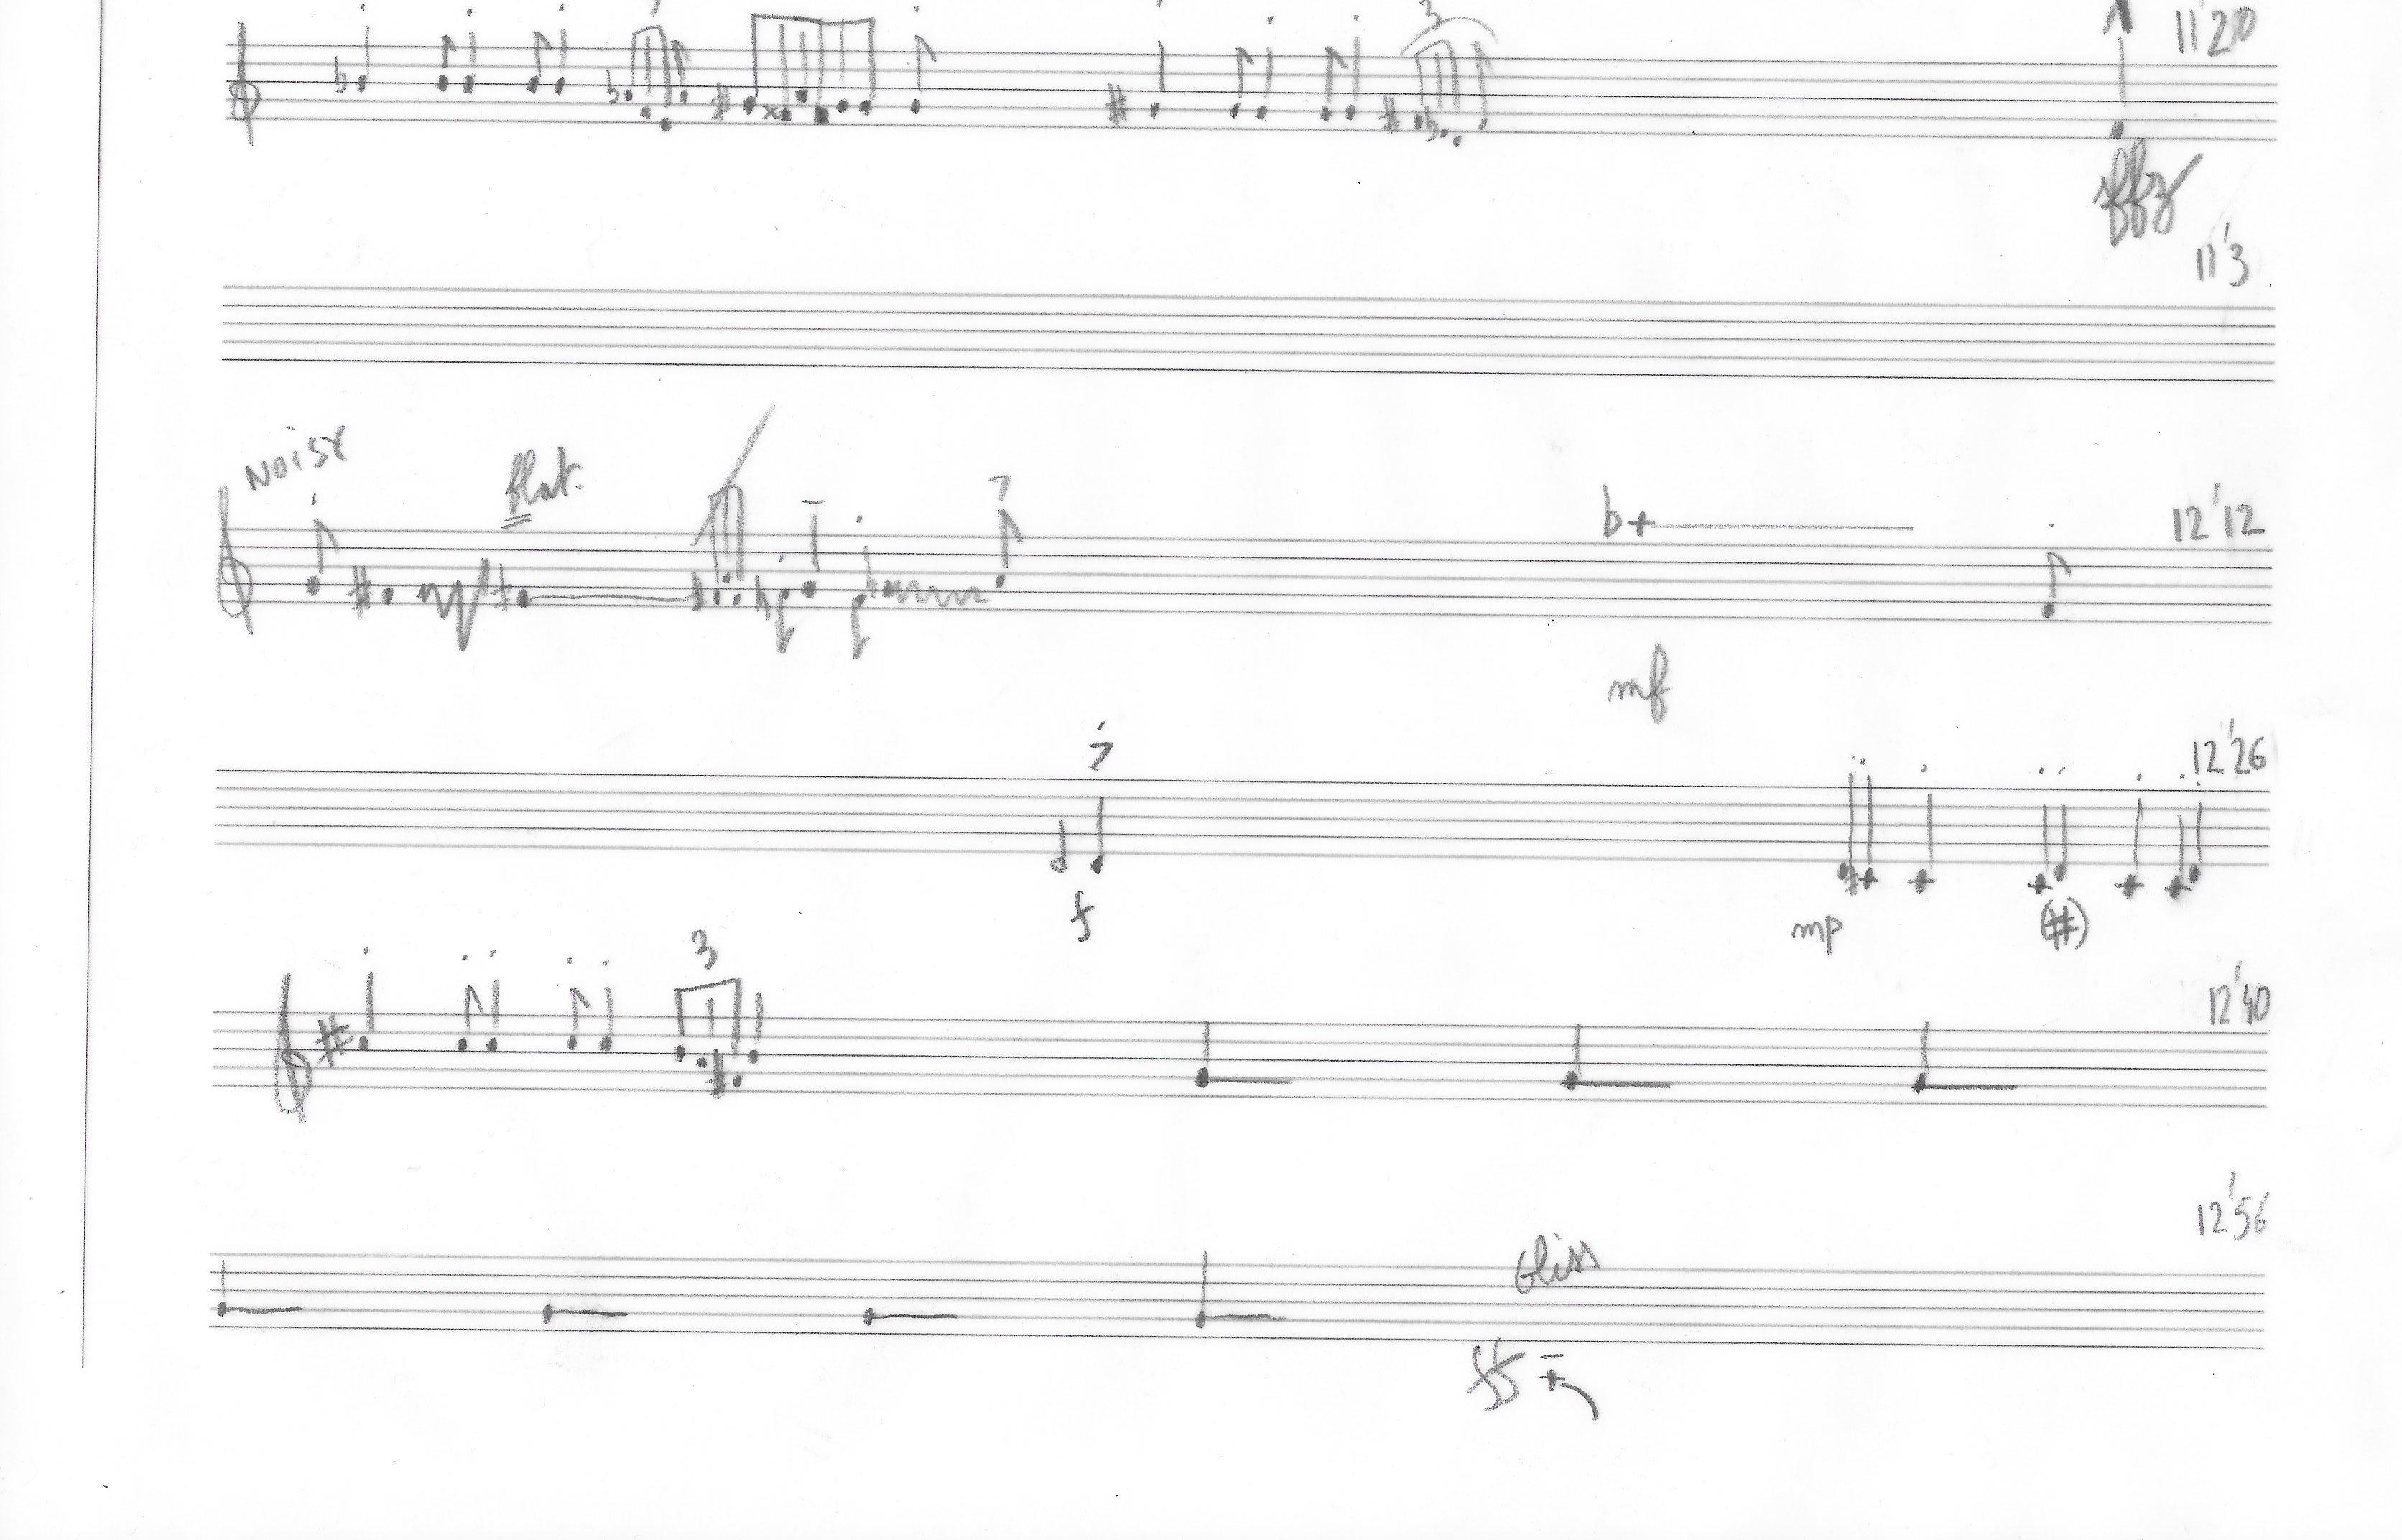 3
11'20
sffz
11'3
NOISY
flat.
12'12
mf
12'26
f
mp
(#)
3
12'40
12'56
Gliss
ff